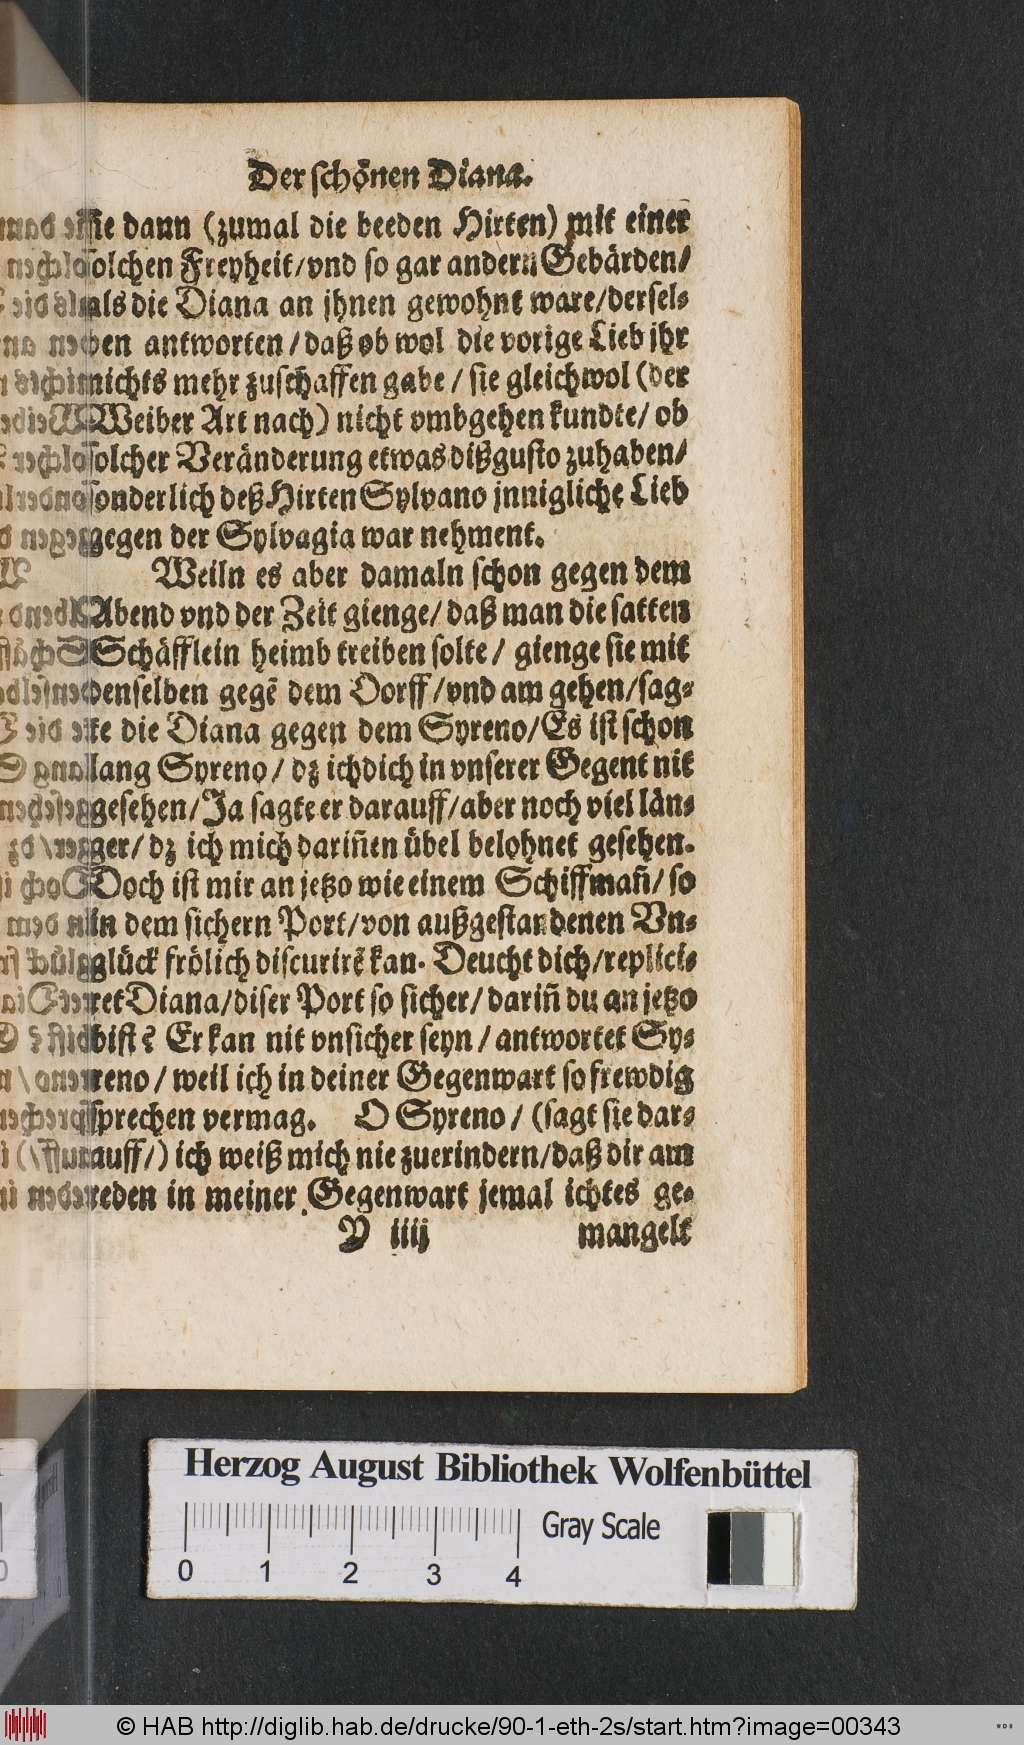 Der schönen Diana.
sie dann (zumal die beeden Hirten) mit einer
solchen Freyheit/vnd so gar andern Gebärden/
als die Diana an jhnen gewohnt ware/dersel-
ben antworten/daß ob wol die vorige Lieb jhr
nichts mehr zuschaffen gabe/ sie gleichwol (der
Weiber Art nach) nicht vmbgehen kundte/ ob
solcher Veränderung etwas dißgusto zuhaben/
sonderlich deß Hirten Sylvano jnnigliche Lieb
gegen der Sylvagia war nehment.
Weiln es aber damaln schon gegen dem
Abend vnd der Zeit gienge/ daß man die satten
Schäfflein heimb treiben solte/ gienge sie mit
denselben gegẽ dem Dorff/vnd am gehen/sag-
te die Diana gegen dem Syreno/Es ist schon
lang Syreno/ dz ich dich in vnserer Gegent nit
gesehen/Ja sagte er darauff/aber noch viel län-
ger/ dz ich mich dariñen übel belohnet gesehen.
Doch ist mir an jetzo wie einem Schiffmañ/ so
in dem sichern Port/von außgestandenen Vn-
glück frölich discurirẽ kan. Deucht dich/replici-
ret Diana/diser Port so sicher/ dariñ du an jetzo
bist? Er kan nit vnsicher seyn/ antwortet Sy-
reno/ weil ich in deiner Gegenwart so frewdig
sprechen vermag. O Syreno/ (sagt sie dar-
auff/) ich weiß mich nie zuerindern/daß dir am
reden in meiner Gegenwart jemal ichtes ge-
Y iiij mangelt
Herzog August Bibliothek Wolfenbüttel
0 1 2 3 4 Gray Scale
© HAB http://diglib.hab.de/drucke/90-1-eth-2s/start.htm?image=00343